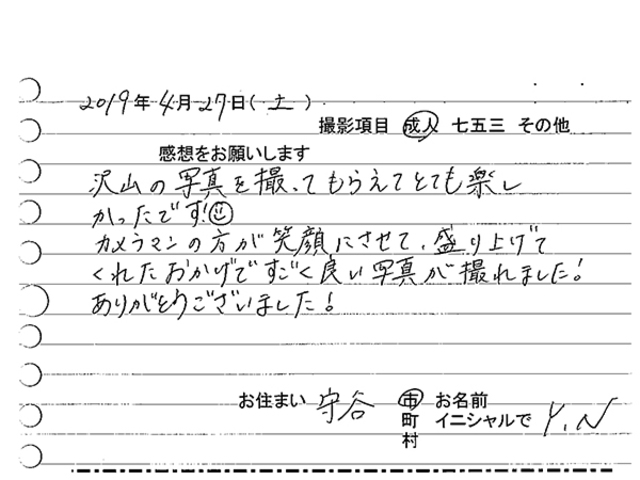 2019年4月27日(土)
撮影項目 成人 七五三 その他
感想をお願いします
沢山の写真を撮ってもらえてとても楽し
かったです!☺
カメラマンの方が笑顔にさせて、盛り上げて
くれたおかげですごく良い写真が撮れました!
ありがとうございました!
お住まい 守谷 市 お名前
町 イニシャルで Y.N
村